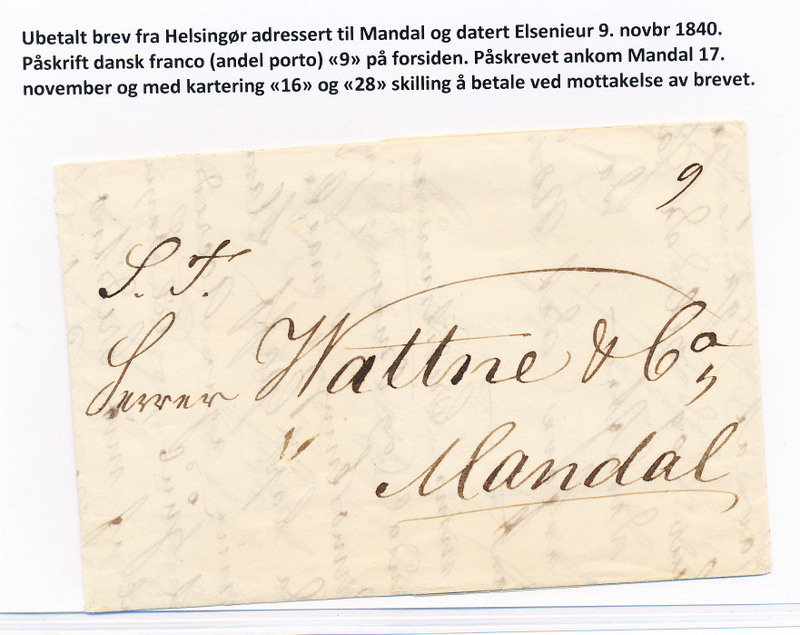 Ubetalt brev fra Helsingør adressert til Mandal og datert Elsenieur 9. novbr 1840.
Påskrift dansk franco (andel porto) «9» på forsiden. Påskrevet ankom Mandal 17.
november og med kartering «16» og «28» skilling å betale ved mottakelse av brevet.
9
S. T.
Herrer Wattne & Co,
Mandal